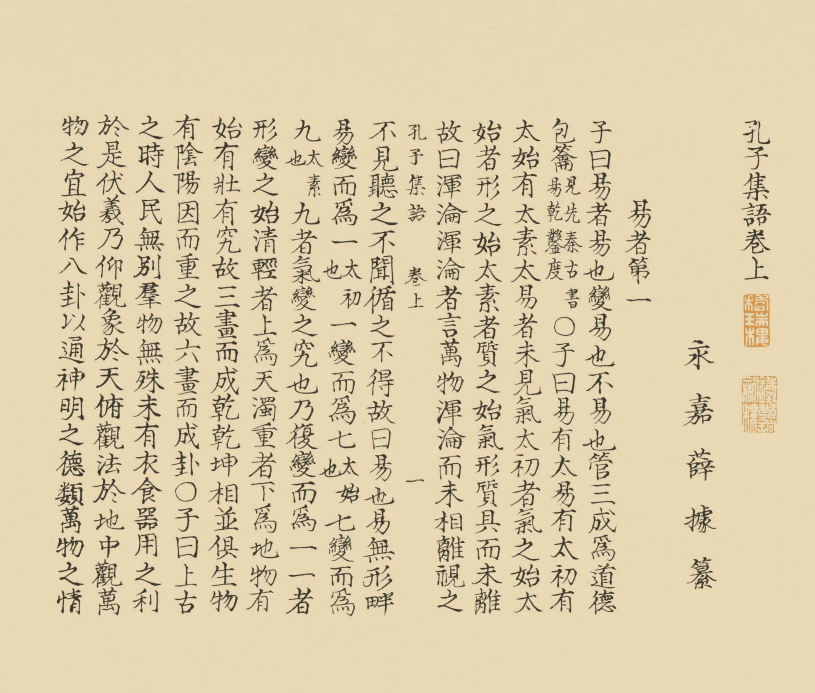 孔子集語卷上
永嘉薛據纂
易者第一
子曰易者易也變易也不易也管三成爲道德
包籥見先秦古書易乾鑿度〇子曰易有太易有太初有
太始有太素太易者未見氣太初者氣之始太
始者形之始太素者質之始氣形質具而未離
故曰渾淪渾淪者言萬物渾淪而未相離視之
孔子集語 卷上 一
不見聽之不聞循之不得故曰易也易無形畔
易變而爲一太初也一變而爲七太始也七變而爲
九太素也九者氣變之究也乃復變而爲一一者
形變之始清輕者上爲天濁重者下爲地物有
始有壯有究故三畫而成乾乾坤相並俱生物
有陰陽因而重之故六畫而成卦〇子曰上古
之時人民無别羣物無殊未有衣食器用之利
於是伏羲乃仰觀象於天俯觀法於地中觀萬
物之宜始作八卦以通神明之德類萬物之情